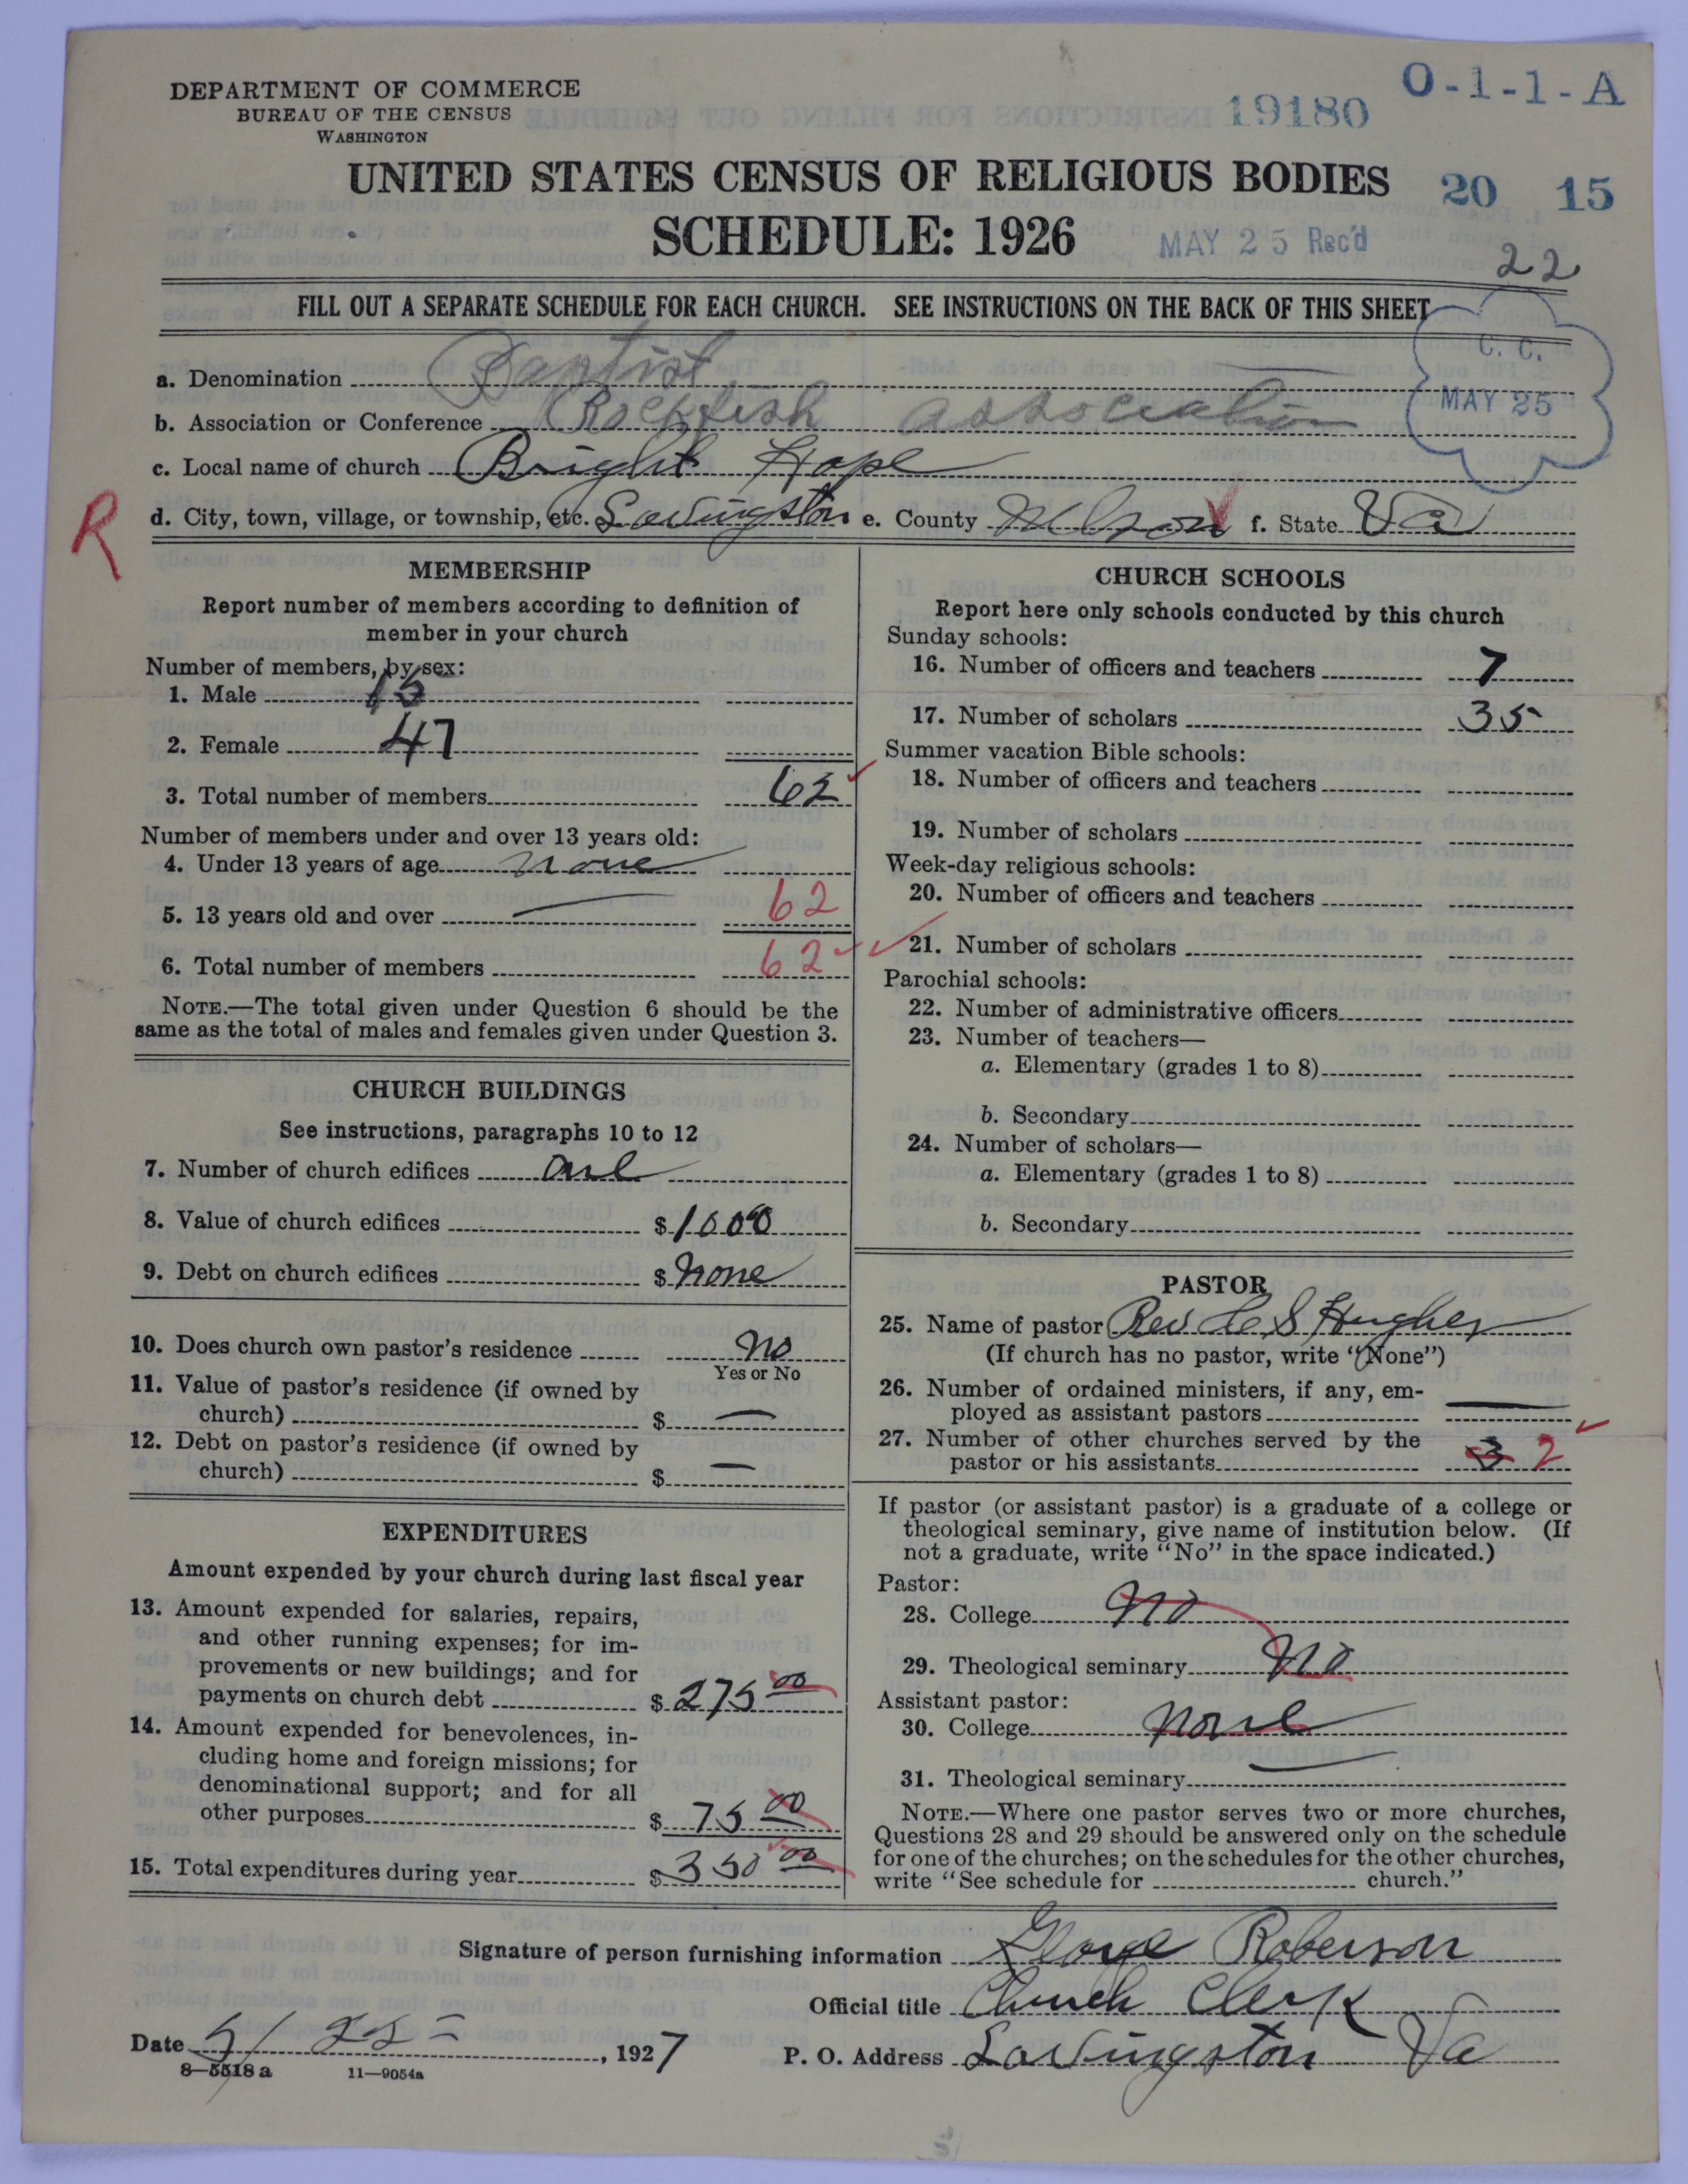 DEPARTMENT OF COMMERCE
BUREAU OF THE CENSUS
WASHINGTON
19180
O-1-1-A
UNITED STATES CENSUS OF RELIGIOUS BODIES
20 15
SCHEDULE: 1926
MAY 25 Rec'd
22
FILL OUT A SEPARATE SCHEDULE FOR EACH CHURCH. SEE INSTRUCTIONS ON THE BACK OF THIS SHEET
C. C.
MAY 25
a. Denomination Baptist
b. Association or Conference Rockfish Association
c. Local name of church Bright Hope
R
d. City, town, village, or township, etc. Lovingston e. County Nelson f. State Va
MEMBERSHIP
Report number of members according to definition of
member in your church
Number of members, by sex:
1. Male 15
2. Female 47
3. Total number of members 62
Number of members under and over 13 years old:
4. Under 13 years of age none
5. 13 years old and over 62
6. Total number of members 62
NOTE.—The total given under Question 6 should be the
same as the total of males and females given under Question 3.
CHURCH BUILDINGS
See instructions, paragraphs 10 to 12
7. Number of church edifices one
8. Value of church edifices $ 1000
9. Debt on church edifices $ none
10. Does church own pastor's residence no
Yes or No
11. Value of pastor's residence (if owned by
church) $ —
12. Debt on pastor's residence (if owned by
church) $ —
EXPENDITURES
Amount expended by your church during last fiscal year
13. Amount expended for salaries, repairs,
and other running expenses; for im-
provements or new buildings; and for
payments on church debt $ 275 00
14. Amount expended for benevolences, in-
cluding home and foreign missions; for
denominational support; and for all
other purposes $ 75 00
15. Total expenditures during year $ 350 00
CHURCH SCHOOLS
Report here only schools conducted by this church
Sunday schools:
16. Number of officers and teachers 7
17. Number of scholars 35
Summer vacation Bible schools:
18. Number of officers and teachers
19. Number of scholars
Week-day religious schools:
20. Number of officers and teachers
21. Number of scholars
Parochial schools:
22. Number of administrative officers
23. Number of teachers—
a. Elementary (grades 1 to 8)
b. Secondary
24. Number of scholars—
a. Elementary (grades 1 to 8)
b. Secondary
PASTOR
25. Name of pastor Rev C S Hughes
(If church has no pastor, write "None")
26. Number of ordained ministers, if any, em-
ployed as assistant pastors —
27. Number of other churches served by the
pastor or his assistants 3 2
If pastor (or assistant pastor) is a graduate of a college or
theological seminary, give name of institution below. (If
not a graduate, write "No" in the space indicated.)
Pastor:
28. College No
29. Theological seminary No
Assistant pastor:
30. College None
31. Theological seminary
NOTE.—Where one pastor serves two or more churches,
Questions 28 and 29 should be answered only on the schedule
for one of the churches; on the schedules for the other churches,
write "See schedule for church."
Signature of person furnishing information George Roberson
Official title Church Clerk
Date 5/ 22 , 1927
P. O. Address Lovingston Va
8—5518 a 11—9054a